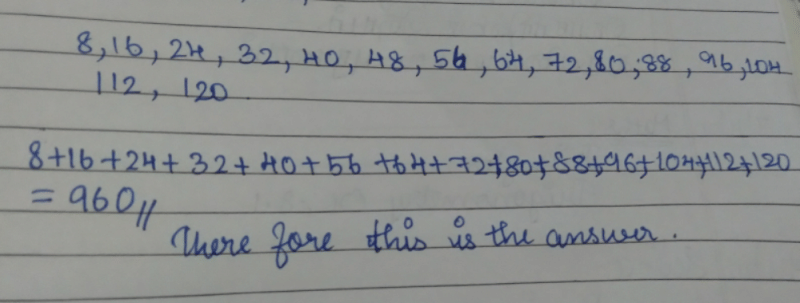 8, 16, 24, 32, 40, 48, 56, 64, 72, 80, 88, 96, 104
112, 120
8+16+24+32+40+56+64+72+80+88+96+104+112+120
= 960//
There fore this is the answer.